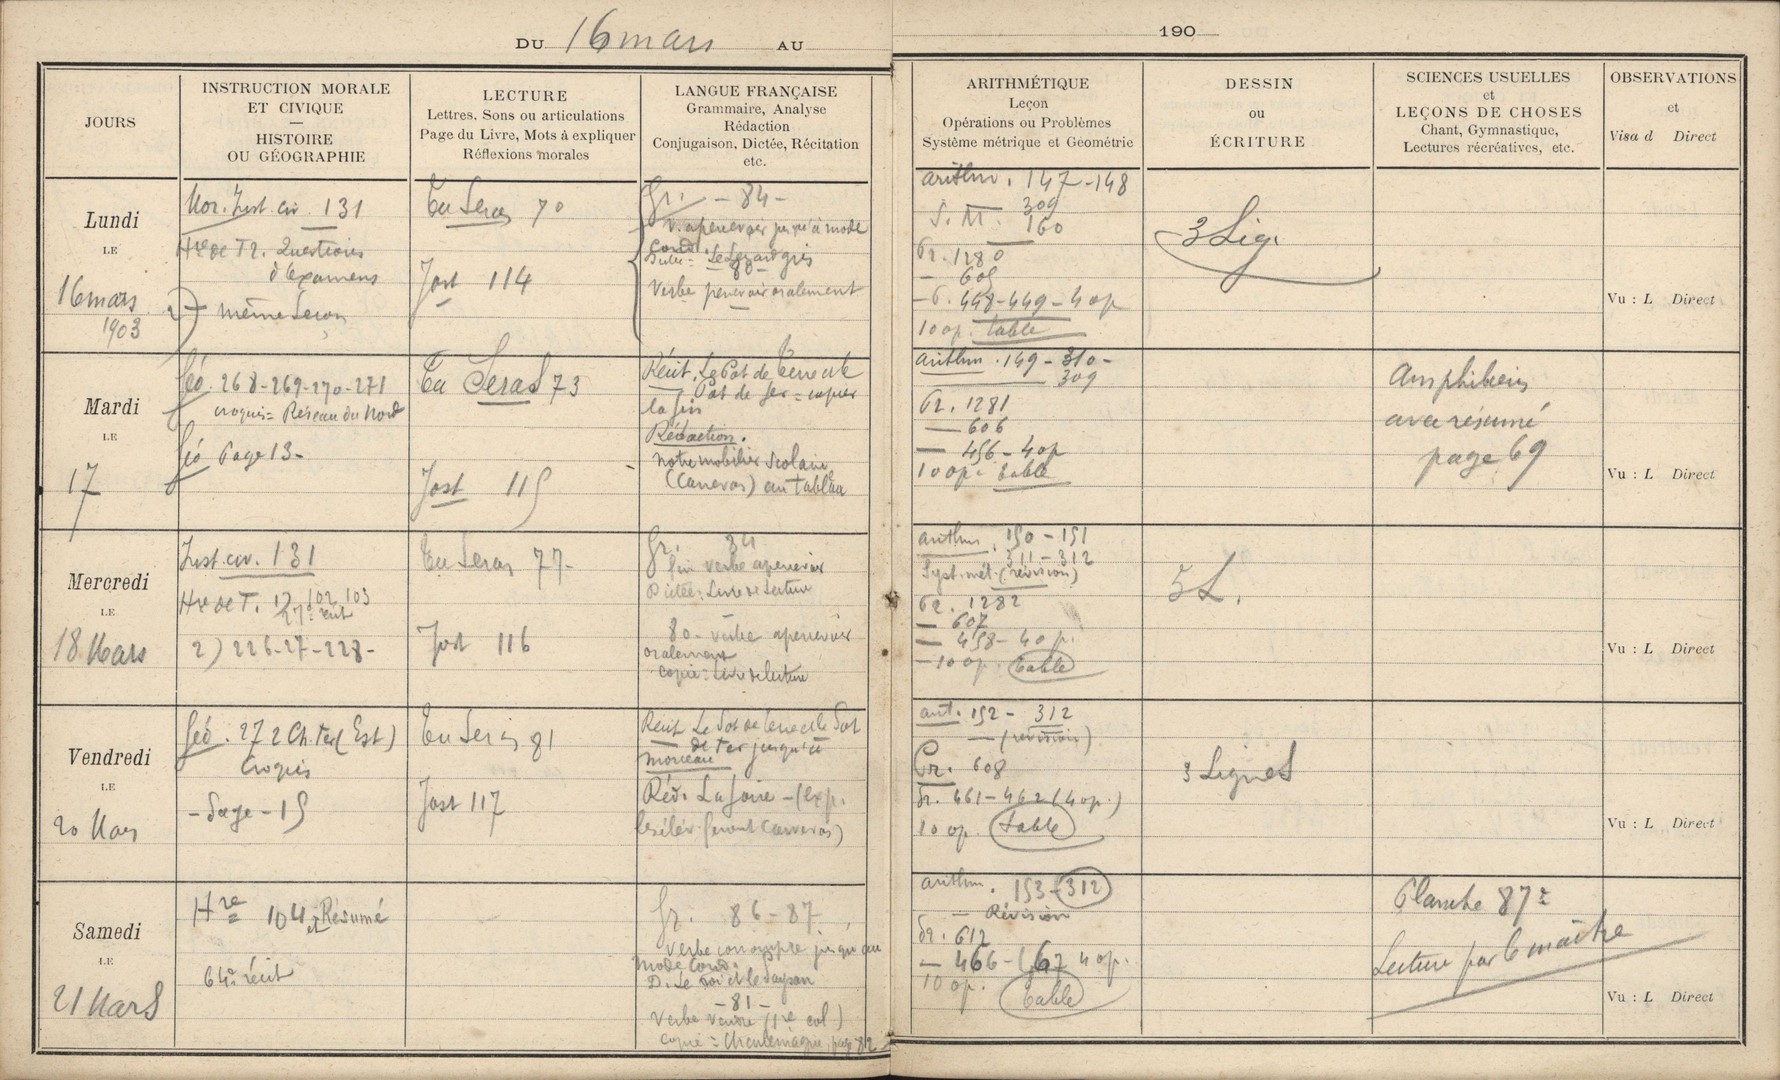 DU 16 mars AU
190
JOURS
INSTRUCTION MORALE
ET CIVIQUE
HISTOIRE
OU GÉOGRAPHIE
LECTURE
Lettres, Sons ou articulations
Page du Livre, Mots à expliquer
Réflexions morales
LANGUE FRANÇAISE
Grammaire, Analyse
Rédaction
Conjugaison, Dictée, Récitation
etc.
ARITHMÉTIQUE
Leçon
Opérations ou Problèmes
Système métrique et Géométrie
DESSIN
ou
ÉCRITURE
SCIENCES USUELLES
et
LEÇONS DE CHOSES
Chant, Gymnastique,
Lectures récréatives, etc.
OBSERVATIONS
et
Visa d Direct
Lundi
LE
16 mars
1903
Mor. Inst. civ. 131
Hre de Fr. Questions
d'examens
2) même Leçon
Tu Seras 70
Jost 114
Gr. - 84 -
V. apercevoir jusqu'à mode
cond.
Dictée = Le Lézard gris
- 80 -
Verbe percevoir oralement
arithm. 147-148
309
S. M. 160
Pr. 1280
- 605
- P. 448-449-4 op
10 op. table
3 Lig.
Vu : L Direct
Mardi
LE
17
Géo. 268-269-270-271
croquis = Réseau du Nord
Géo Page 13-
Tu Seras 73
Jost 115
Récit. Le Pot de terre et le
Pot de fer = copier
la fin
Rédaction.
Notre mobilier scolaire
(Canevas) au tableau
arithm. 149-310-
309
Pr. 1281
- 606
- 456-4 op
10 op = table
Amphibiens
avec résumé
page 69
Vu : L Direct
Mercredi
LE
18 Mars
Inst. civ. 131
Hre de F. 102 103
27e récit
2) 226-27-228-
Tu Seras 77-
Jost 116
Gr. 84
fin verbe apercevoir
Dictée: Livre de Lecture
80 - verbe apercevoir
oralement
copie: Livre de lecture
arithm. 150-151
311-312
Syst. mét. (révision)
Pr. 1282
- 607
- 458-4 op.
- 10 op. table
5 L.
Vu : L Direct
Vendredi
LE
20 Mars
Géo. 272 Ch. fer (Est)
Croquis
- Page - 15
Tu Seras 81
Jost 117
Récit Le Pot de terre et le Pot
de fer jusqu'à
morceau
Réd. La foire - (exp.
les élèv. feront canevas)
arit. 152 - 312
- (révision)
Pr. 608
Pr. 461-462 (4 op.)
10 op. table
3 Lignes
Vu : L Direct
Samedi
LE
21 Mars
Hre 104 et Résumé
64e récit
Gr. 86-87
Verbe corrompre jusqu'au
mode Cond.
D. Le roi et le paysan
- 81 -
Verbe vendre (1re col)
copie = Charlemagne, page 82
arithm. 153-312
- Révision
Pr. 612
- 466-467 4 op.
10 op. table
Planche 87e
Lecture par le maître
Vu : L Direct